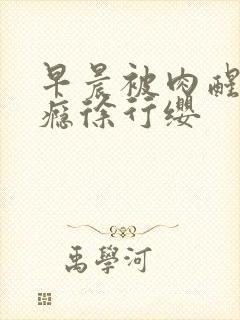 早晨被肉醒
瘾徐行缨
禹學河